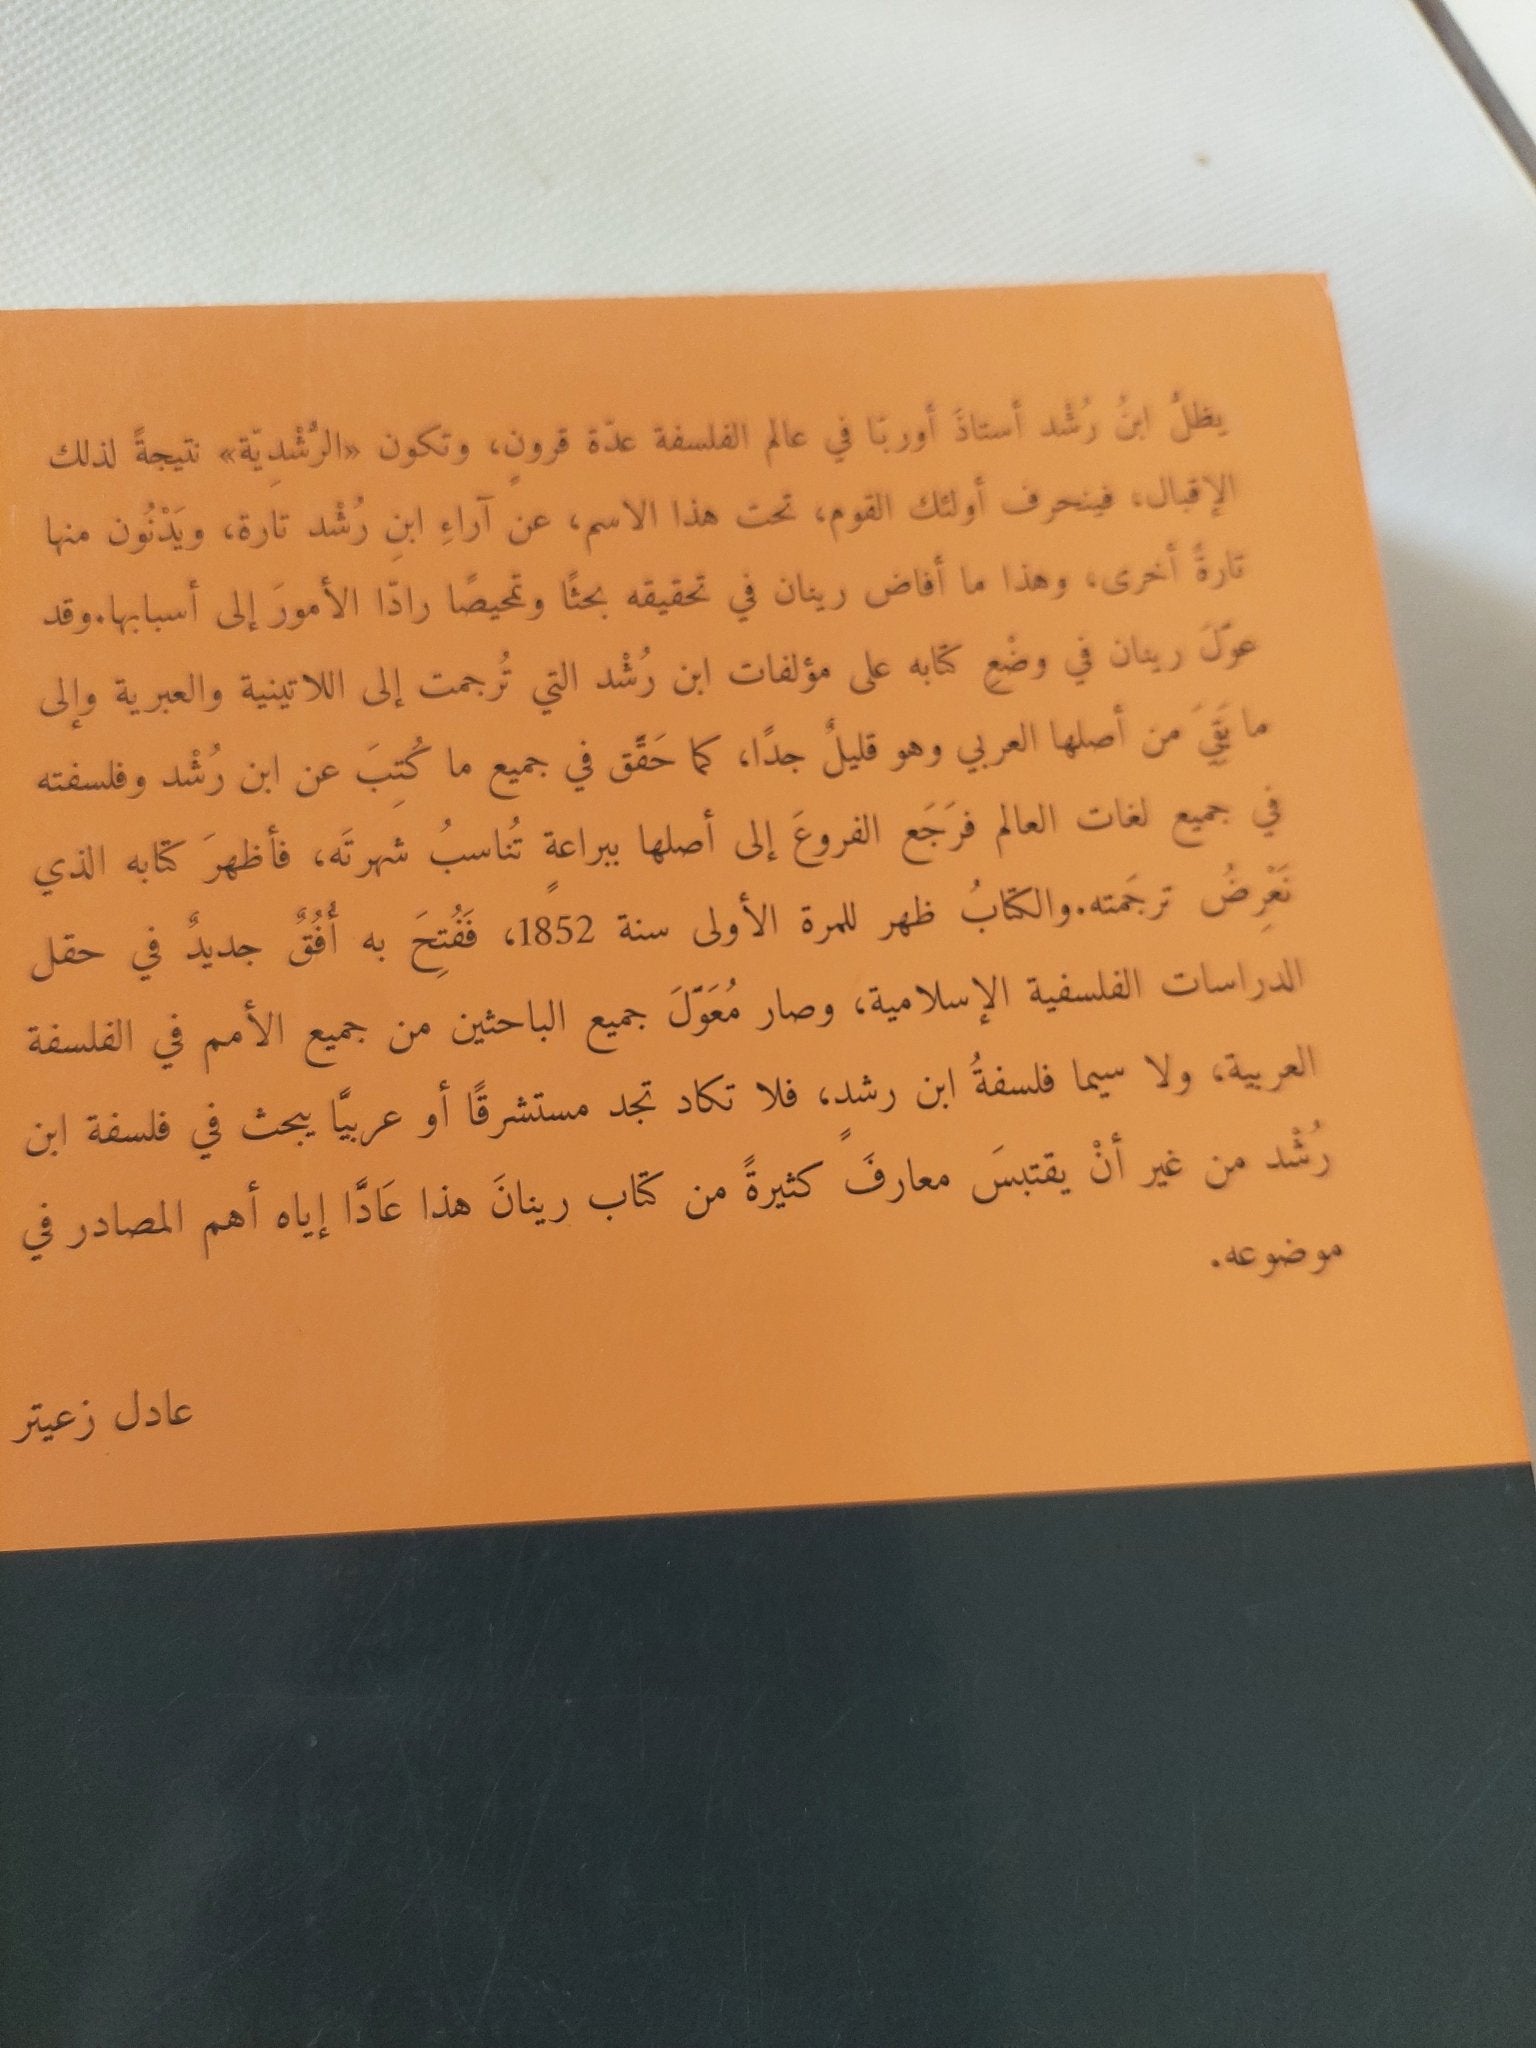 يظلُّ ابنُ رُشْد أستاذَ أوربّا في عالم الفلسفة عدّة قرونٍ، وتكون «الرُّشْدِيّة» نتيجةً لذلك
الإقبال، فينحرف أولئك القوم، تحت هذا الاسم، عن آراءِ ابنِ رُشْد تارة، ويَدْنُون منها
تارةً أخرى، وهذا ما أفاض رينان في تحقيقه بحثًا وتمحيصًا رادّا الأمورَ إلى أسبابها.وقد
عوّلَ رينان في وضْعِ كتابه على مؤلفات ابن رُشْد التي تُرجمت إلى اللاتينية والعبرية وإلى
ما بَقِيَ من أصلها العربي وهو قليلٌ جدًا، كما حَقَّق في جميع ما كُتِبَ عن ابن رُشْد وفلسفته
في جميع لغات العالم فرَجَع الفروعَ إلى أصلها ببراعةٍ تُناسبُ شهرتَه، فأظهرَ كتابه الذي
نَعْرِضُ ترجَمته.والكتابُ ظهر للمرة الأولى سنة 1852، فَفُتِحَ به أُفُقٌ جديدٌ في حقل
الدراسات الفلسفية الإسلامية، وصار مُعَوَّلَ جميع الباحثين من جميع الأمم في الفلسفة
العربية، ولا سيما فلسفةُ ابن رشدٍ، فلا تكاد تجد مستشرقًا أو عربيًّا يبحث في فلسفة ابن
رُشْد من غير أنْ يقتبسَ معارفَ كثيرةً من كتاب رينانَ هذا عَادًّا إياه أهم المصادر في
موضوعه.
عادل زعيتر